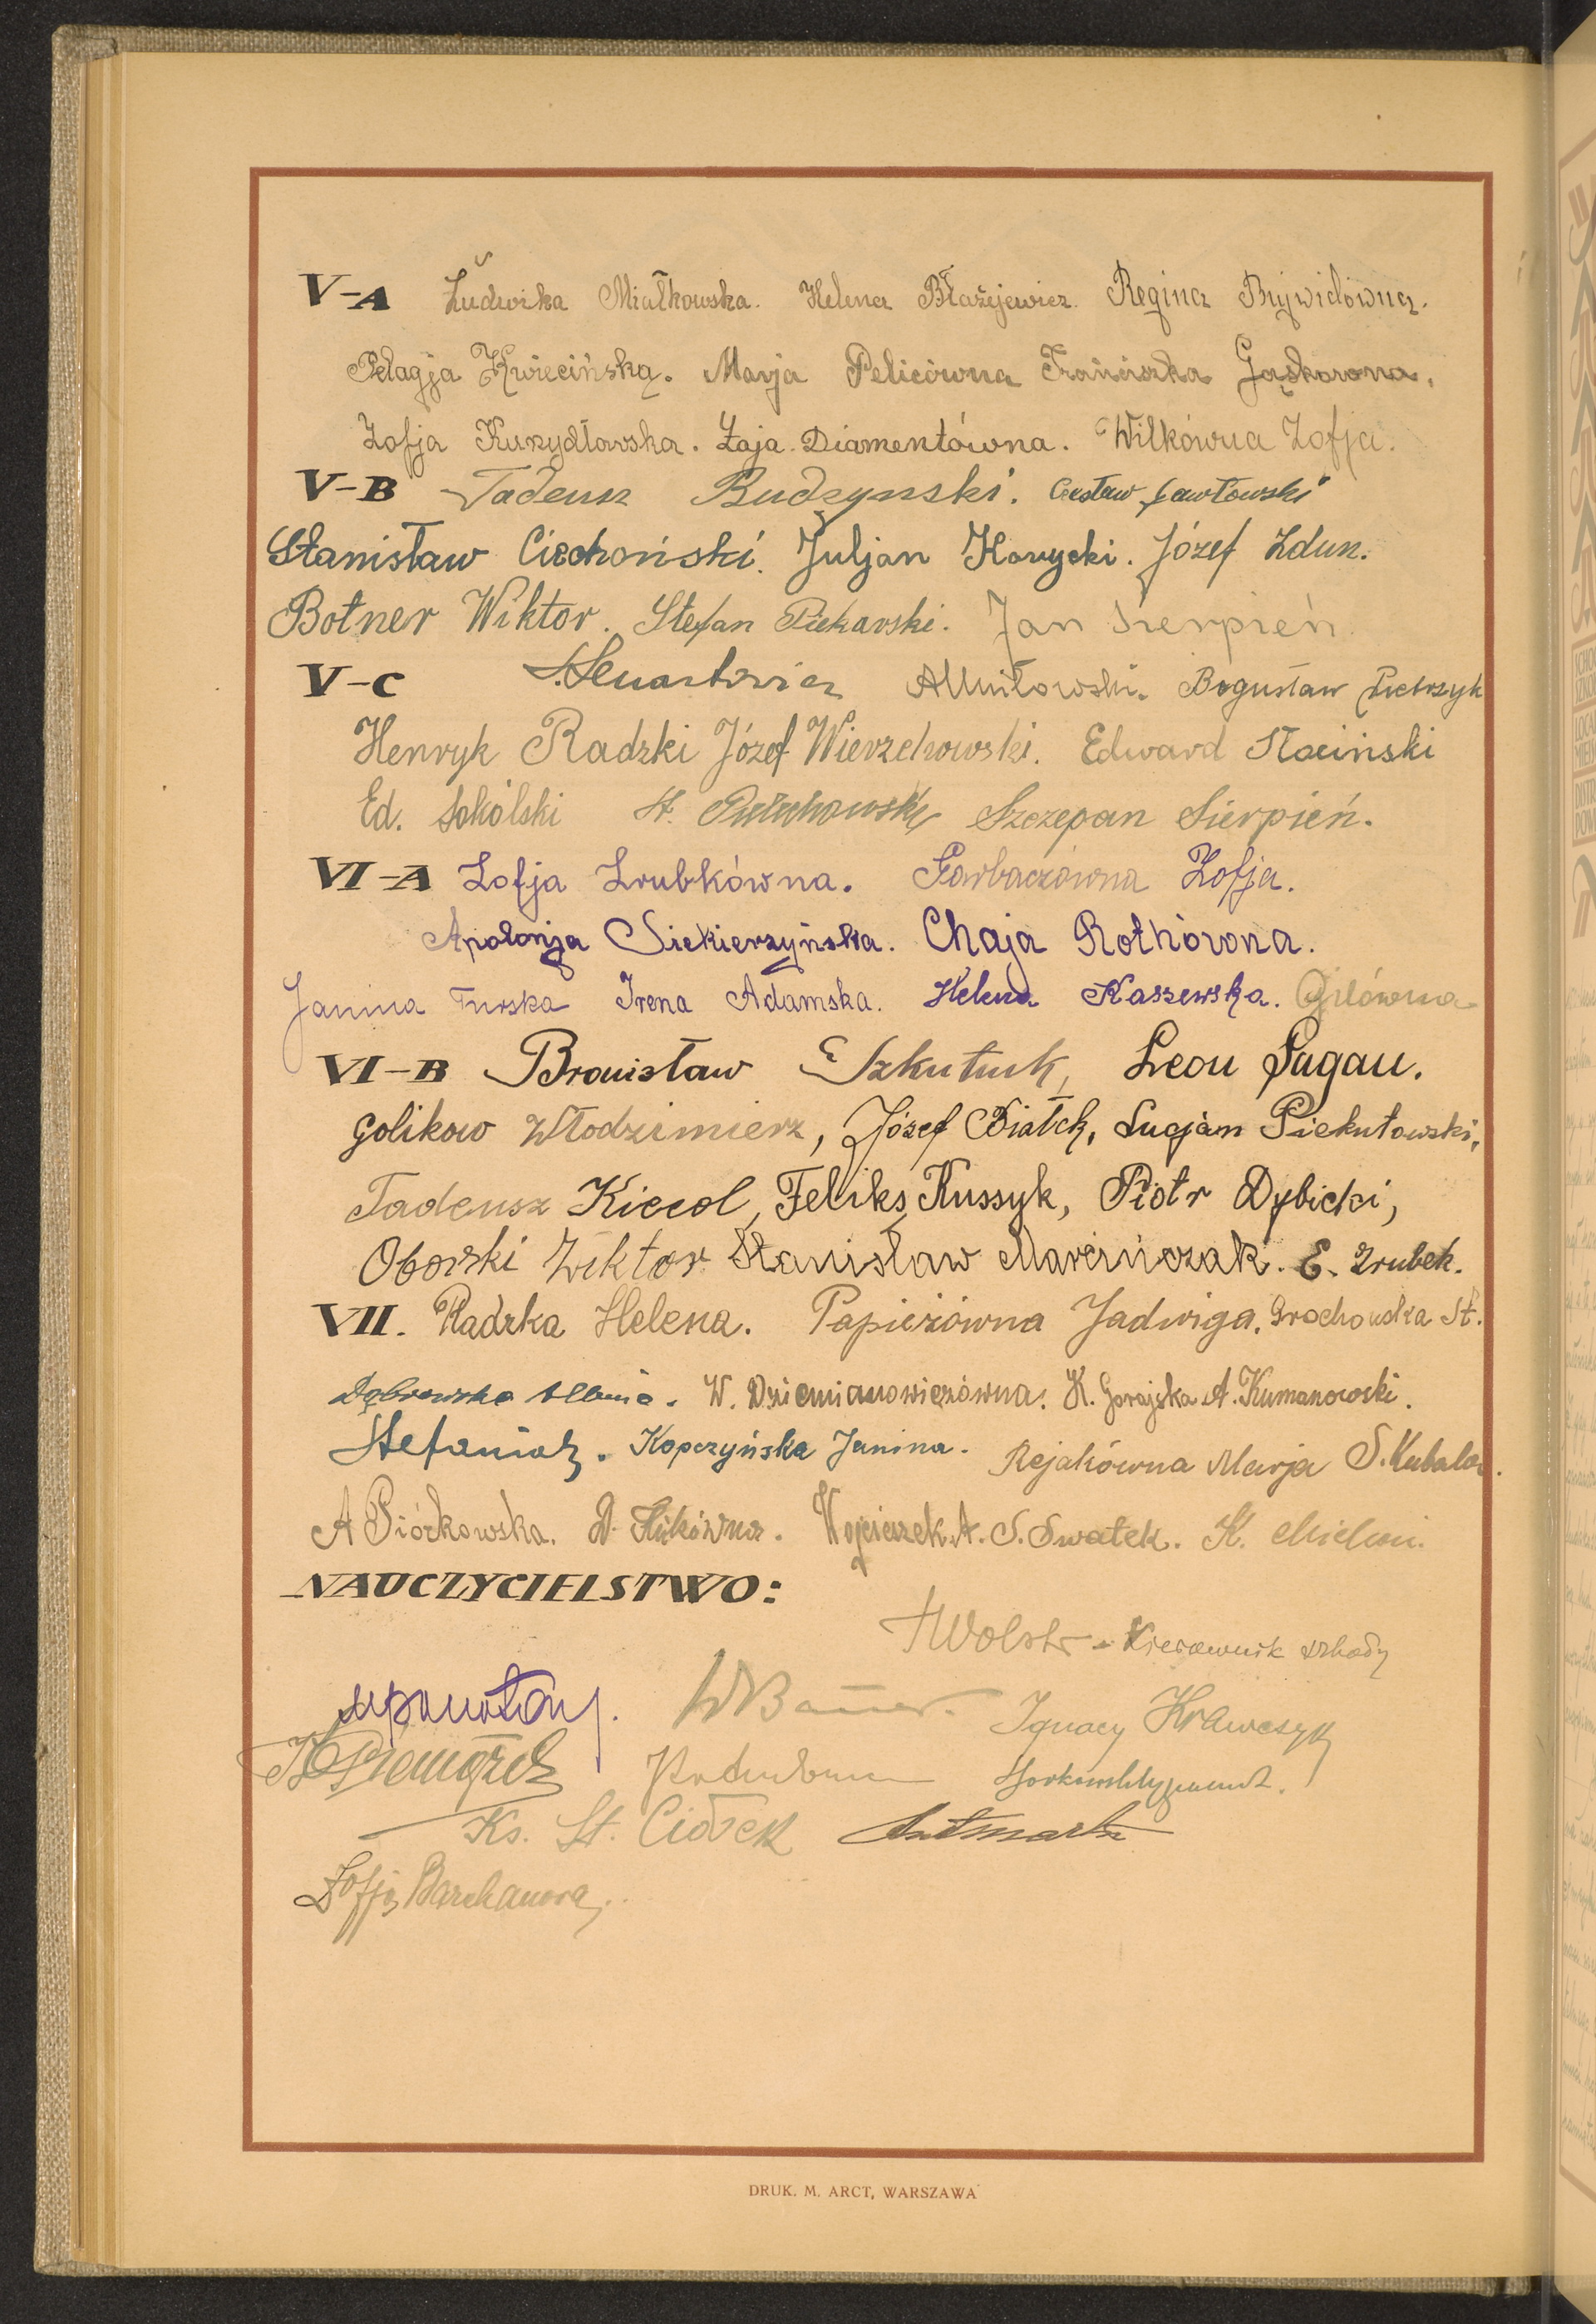 V-A Ludwika Miałkowska. Helena Błażejewicz. Regina Brywidówna.
Pelagja Kwiecińska. Marja Pelicówna Franciszka Gąskowna.
Zofja Kurzydłowska. Łaja Diamentówna. Wilkówna Zofja.
V-B Tadeusz Budzynski. Czesław Gawłowski
Stanisław Ciechoński. Juljan Kowycki. Józef Zdun.
Botner Wiktor. Stefan Piekarski. Jan Sierpień.
V-C Bogusław Pietrzyk
Henryk Radzki Józef Wierzchowski. Edward Słociński
Ed. Sokólski St. Szczepan Sierpień.
VI-A Zofja Zrubkówna. Garbaczówna Zofja.
Apolonja Siekierzyńska. Chaja Rothówna.
Janina Turska Irena Adamska. Helena Kaszewska. Gilówna
VI-B Bronisław Szkutnik, Leon Sagan.
Golikow Włodzimierz, Józef Białek, Lucjan Piekutowski,
Tadeusz Kiecol, Feliks Kussyk, Piotr Dybicki,
Oborski Wiktor Stanisław Marcińczak. E. Zrubek.
VII. Radzka Helena. Papieżówna Jadwiga. Grochowska St.
Dąbrowska W. Dziemianowiczówna. K. Gorajska A. Kumanowski.
Stefaniak. Kopczyńska Janina. Rejakówna Marja S. Kubala.
A Piórkowska. Wojcieszek A. S. Swatek. K.
NAUCZYCIELSTWO:
Kierownik szkoły
Ignacy Krawczyk
Ks. St. Ciołek
Zofja Barchanowa.
DRUK. M. ARCT, WARSZAWA